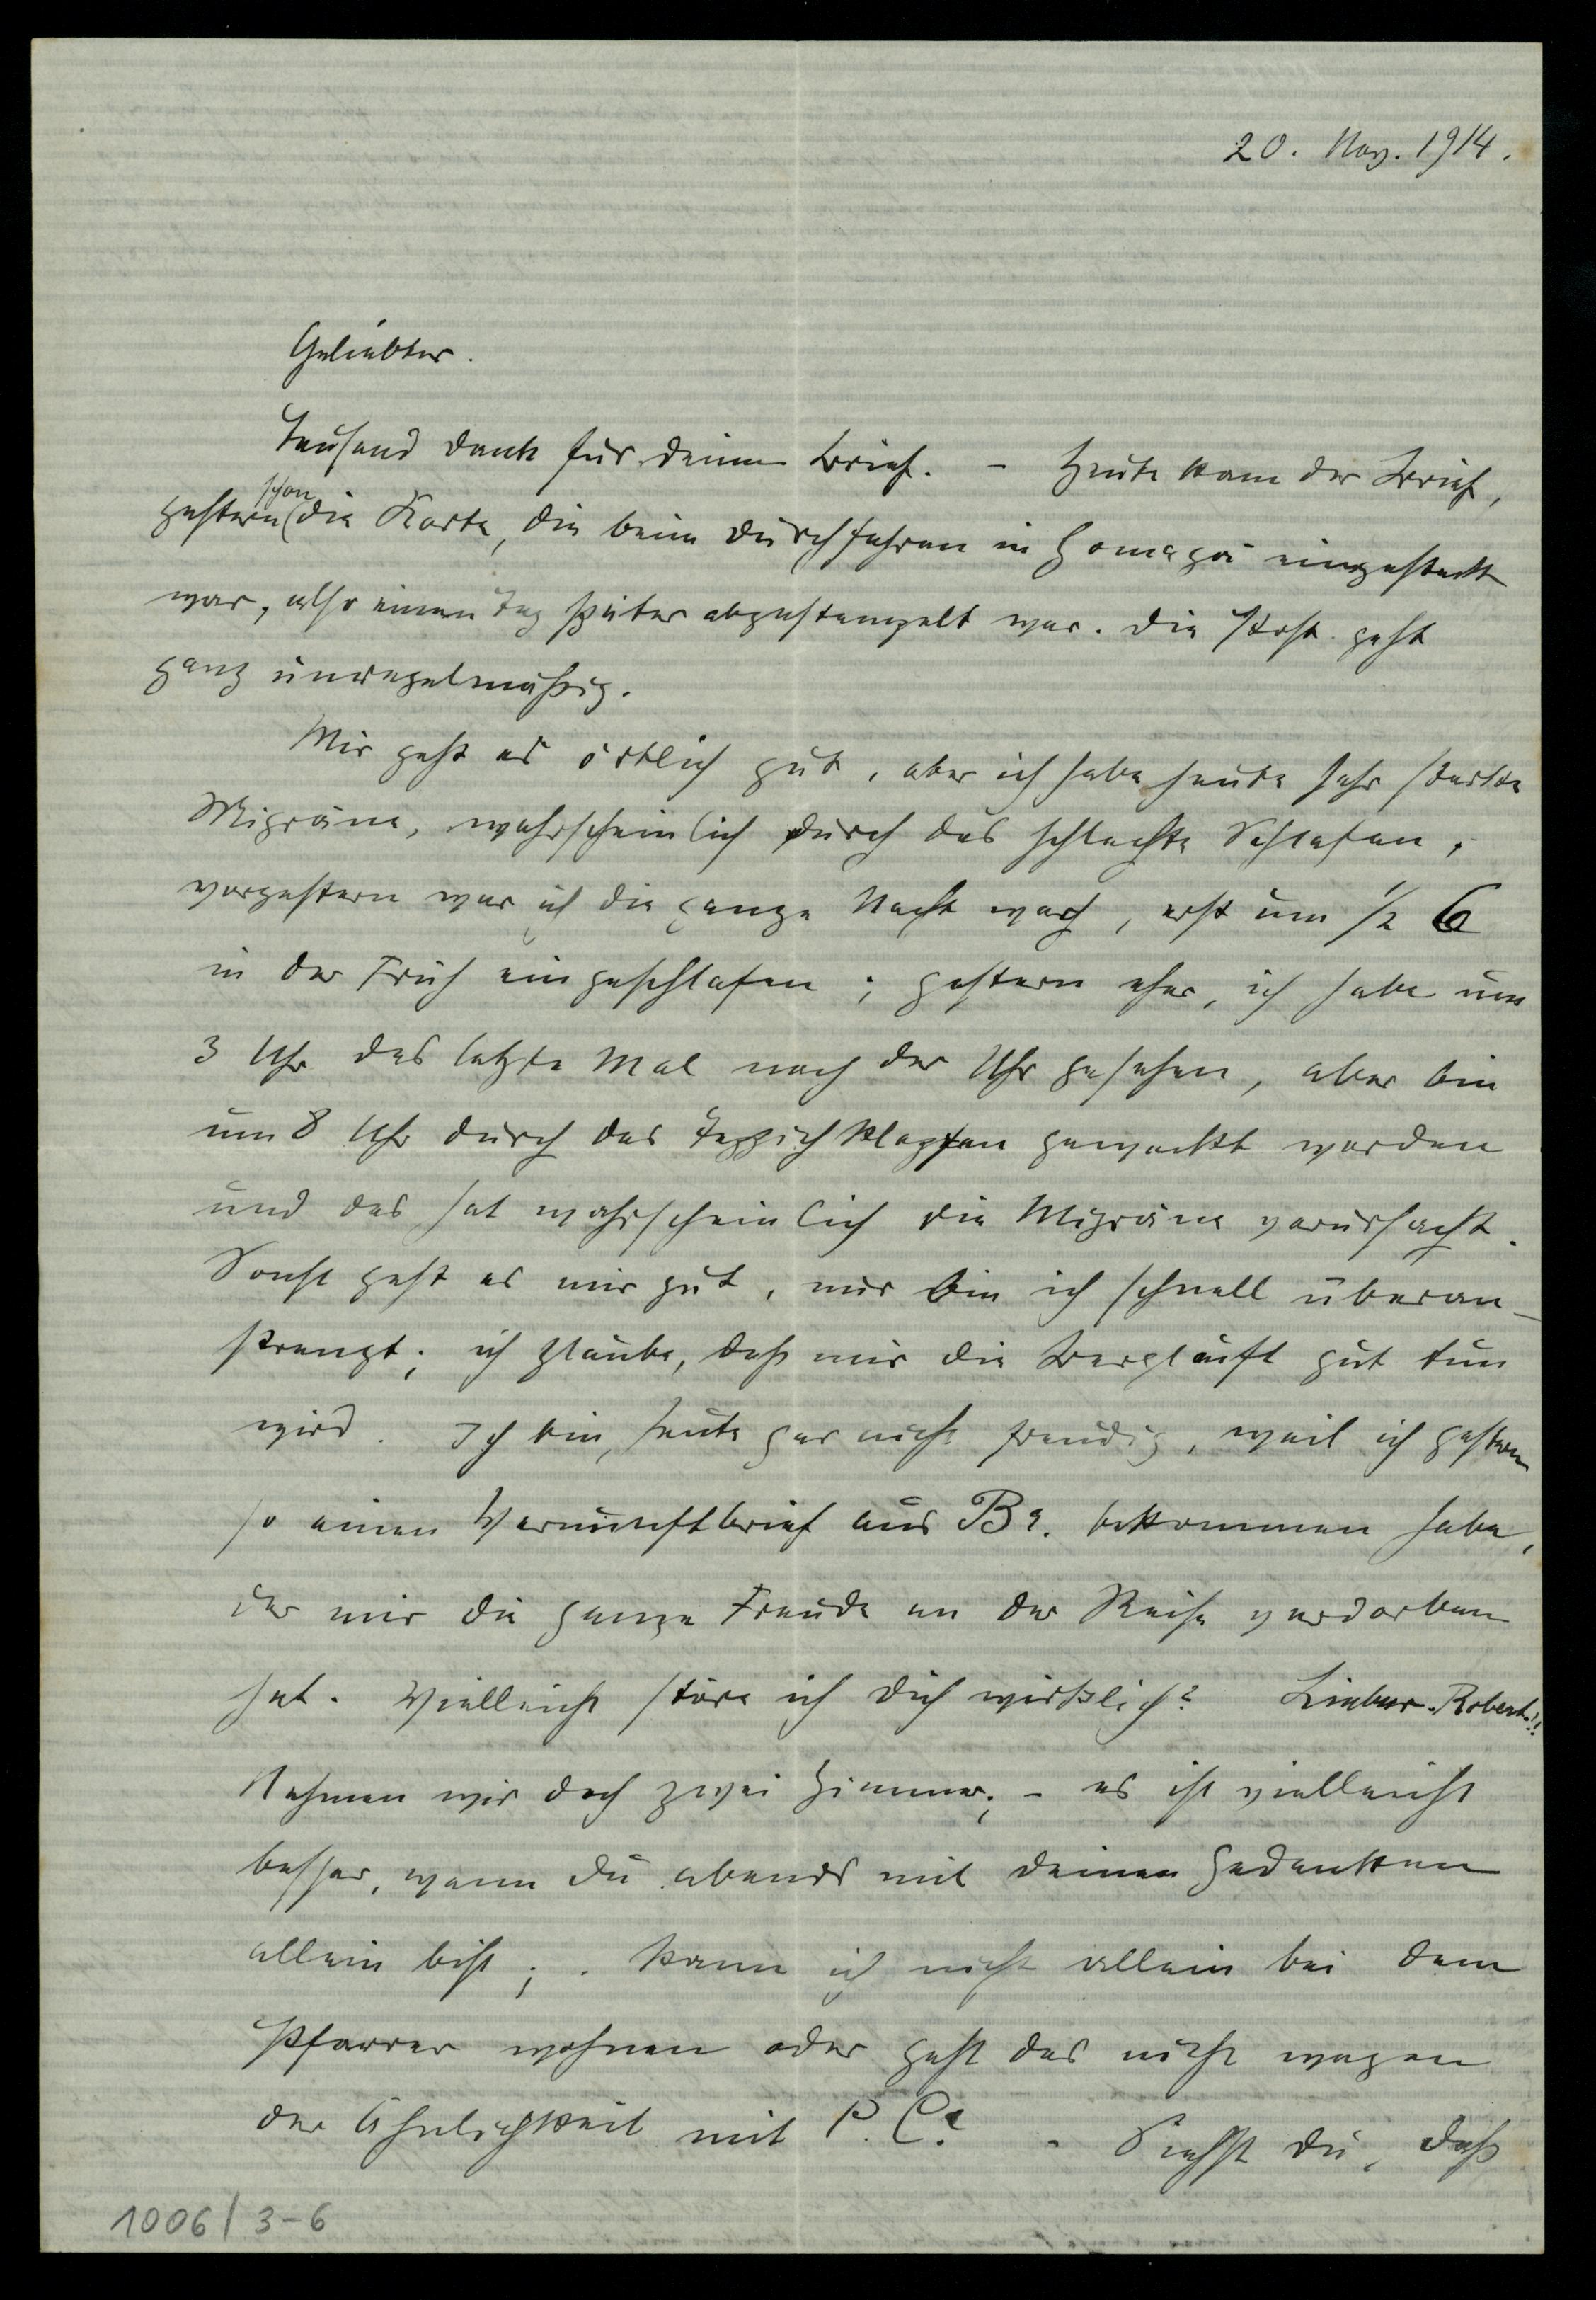 20. Nov. 1914.
Geliebter.
Tausend Dank für deinen Brief. – Heute kam der Brief,
schon
gestern (die Karte, die beim Durchfahren in Gomagoi eingesteckt
war, also einen Tag später abgestempelt war. Die Post geht
ganz unregelmäßig.
Mir geht es örtlich gut, aber ich habe heute sehr starke
Migräne, wahrscheinlich durch das schlechte Schlafen,
vorgestern war ich die ganze Nacht wach, erst um 1/2 6
in der Früh eingeschlafen; gestern eher, ich habe um
3 Uhr das letzte Mal nach der Uhr gesehen, aber bin
um 8 Uhr durch das Teppichklopfen geweckt worden
und das hat wahrscheinlich die Migräne verursacht.
Sonst geht es mir gut, nur bin ich schnell überan-
strengt; ich glaube, daß mir die Bergluft gut tun
wird. Ich bin heute gar nicht freudig, weil ich gestern
so einen Vernunftbrief aus Be. bekommen habe,
der mir die ganze Freude an der Reise verdorben
hat. Vielleicht störe ich dich wirklich? Lieber Robert!!
Nehmen wir doch zwei Zimmer; – es ist vielleicht
besser, wenn du abends mit deinen Gedanken
allein bist; . Kann ich nicht allein bei dem
Pfarrer wohnen oder geht das nicht wegen
der Ähnlichkeit mit P. C.? . Siehst du, daß
1006/3-6